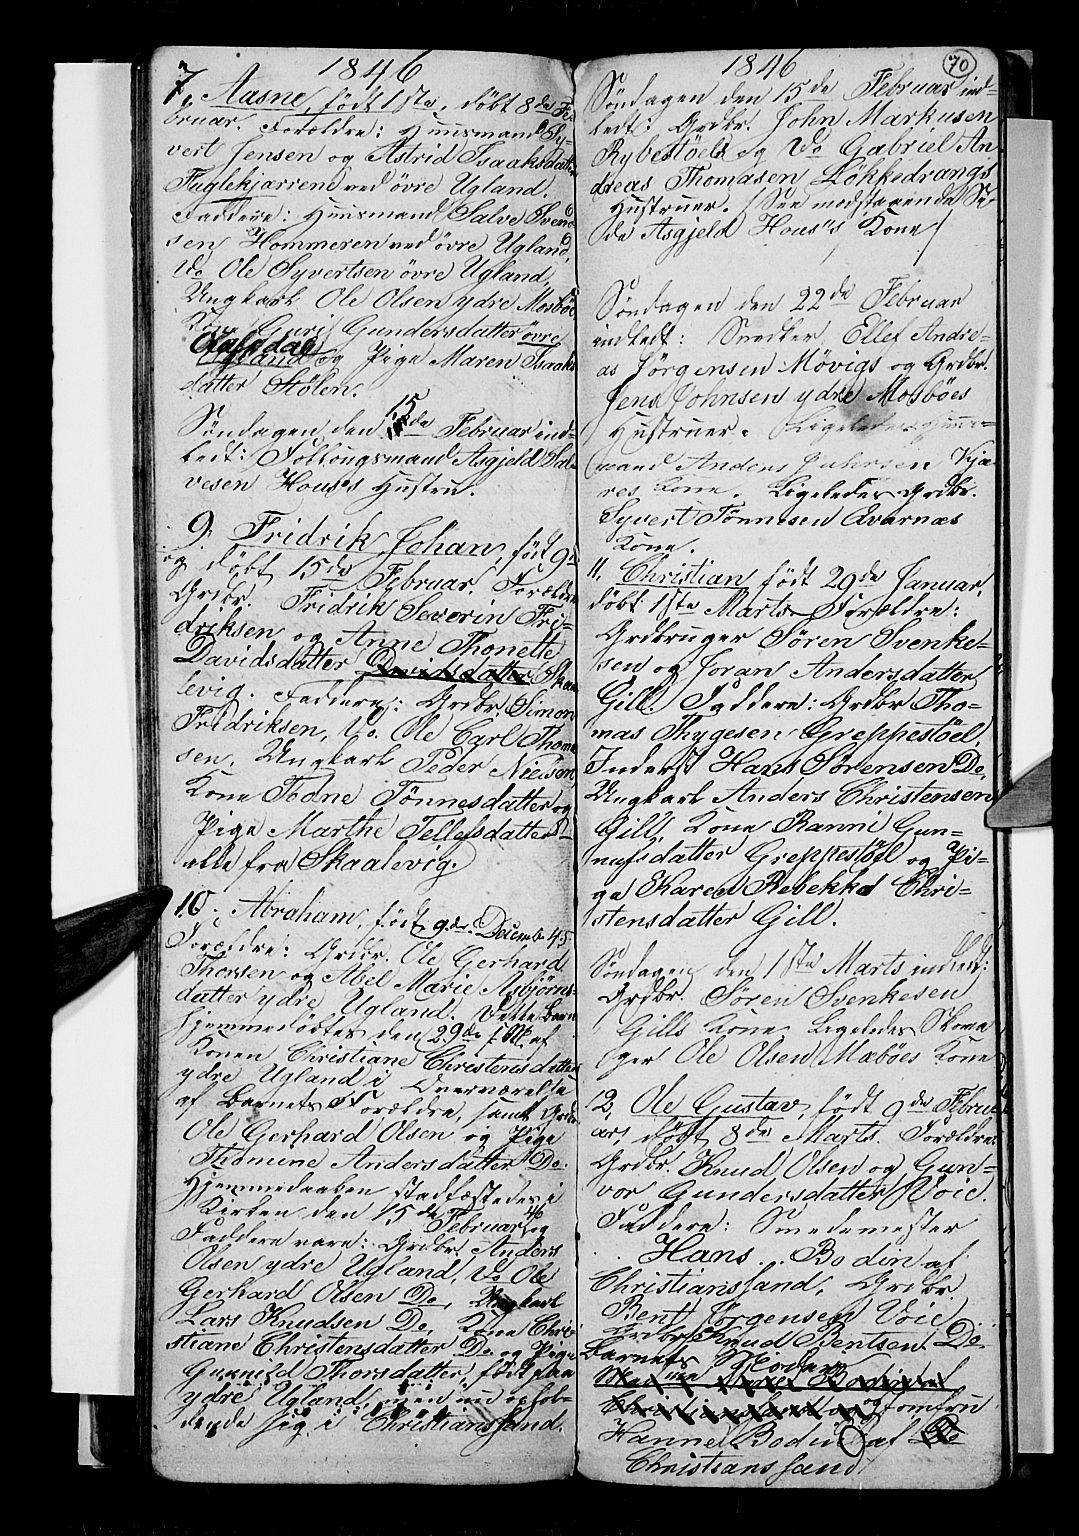 1846
7, Aasne, født 1ste, døbt 8de Fe-
bruar. Forældre: Huusmand Sy-
vert Jensen og Astrid Isaaksdatter
Fuglekjærrene ved øvre Ugland.
Faddere: Huusmand Salve Svend-
sen Hommeren ved øvre Ugland,
Do Ole Syvertsen øvre Ugland,
Ungkarl Ole Olsen ydre Mosbøe
Kone Guri Gundersdatter øvre
Ugland og Pige Maren Isaaks-
datter Stølen.
Søndagen den 15de Februar ind-
ledt: Asgjeld Sal-
vesen Hous's Hustru.
9. Fridrik Johan, født 9de
og døbt 15de Februar. Forældre
Grdbr. Fridrik Severin Fri-
driksen og Anne Thonette
Davidsdatter Davidsdatter Skaa-
levig. Faddere: Grdbr. Simon
Fridriksen, Do. Ole Carl Thom-
sen. Ungkarl Peder Nielsen
Kone Todne Tønnesdatter og
Pige Marthe Tellefsdatter
alle fra Skaalevig.
10. Abraham, født 9de Decemb. 45
Forældre: Grdbr. Ole Gerhard
Thorsen og Abel Marie Asbjørns-
datter ydre Ugland. Dette Barn
hjemmedøbtes den 29de s. M. af
Konen Christiane Christensdatter
ydre Ugland i Overværelse
af Barnets Forældre, samt Grdbr
Ole Gerhard Olsen og Pige
Thomine Andersdatter Do.
Hjemmedaaben stadfæstedes i
Kirken den 15de Februar 46 og
Faddere vare: Grdbr. Anders
Olsen ydre Ugland, Do Ole
Gerhard Olsen Do, Ungkarl
Lars Knudsen Do, Kone Chri-
stiane Christensdatter Do og Pige
Gunnild Thorsdatter, født paa
ydre Ugland, men nu ophol-
dende sig i Christianssand.
1846
70
Søndagen den 15de Februar ind-
ledt: Grdbr. John Markusen
Rybestøels og Do Gabriel An-
dreas Thomasen Løkkedrangs
Hustruer. (See nedstaaende Si-
de Asgjeld Hous's Kone)
Søndagen den 22de Februar
indledt: Snedker Ellef Andre-
as Jørgensen Møvigs og Grdbr.
Jens Johnsen ydre Mosbøes
Hustruer. Ligeledes Huus-
mand Anders Kjæ-
res Kone. Ligeledes Grdbr.
Syvert Tønnesen Qvarnæs
Kone.
11. Christian født 29de Januar,
døbt 1ste Marts Forældre:
Grdbruger Søren Svenke-
sen og Joran Andersdatter
Gill. Faddere: Grdbr Tho-
mas Thygesen Greppestøel
Inderst Hans Sørensen Do,
Ungkarl Anders Christensen
Gill, Kone Ranni Gun-
nufsdatter Greppestøel og Pi-
ge Karen Rebekka Chri-
stensdatter Gill.
Søndagen den 1ste Marts indledt:
Grdbr. Søren Svenkesen
Gills Kone Ligeledes
Ole Olsen Mæbøes Kone
12, Ole Gustav, født 9de Febru-
ar, døbt 8de Marts. Forældre
Grdbr. Knud Olsen og Gun-
vor Gundersdatter Voie.
Faddere: Smedemester
Hans Bodin af
Christianssand, Grdbr.
Bent Jørgensen Voie
Grdbr Knud Bentsen Do.
Barnets Moder
Christianssand og Jomfru
Hanne Bodin af
Christianssand